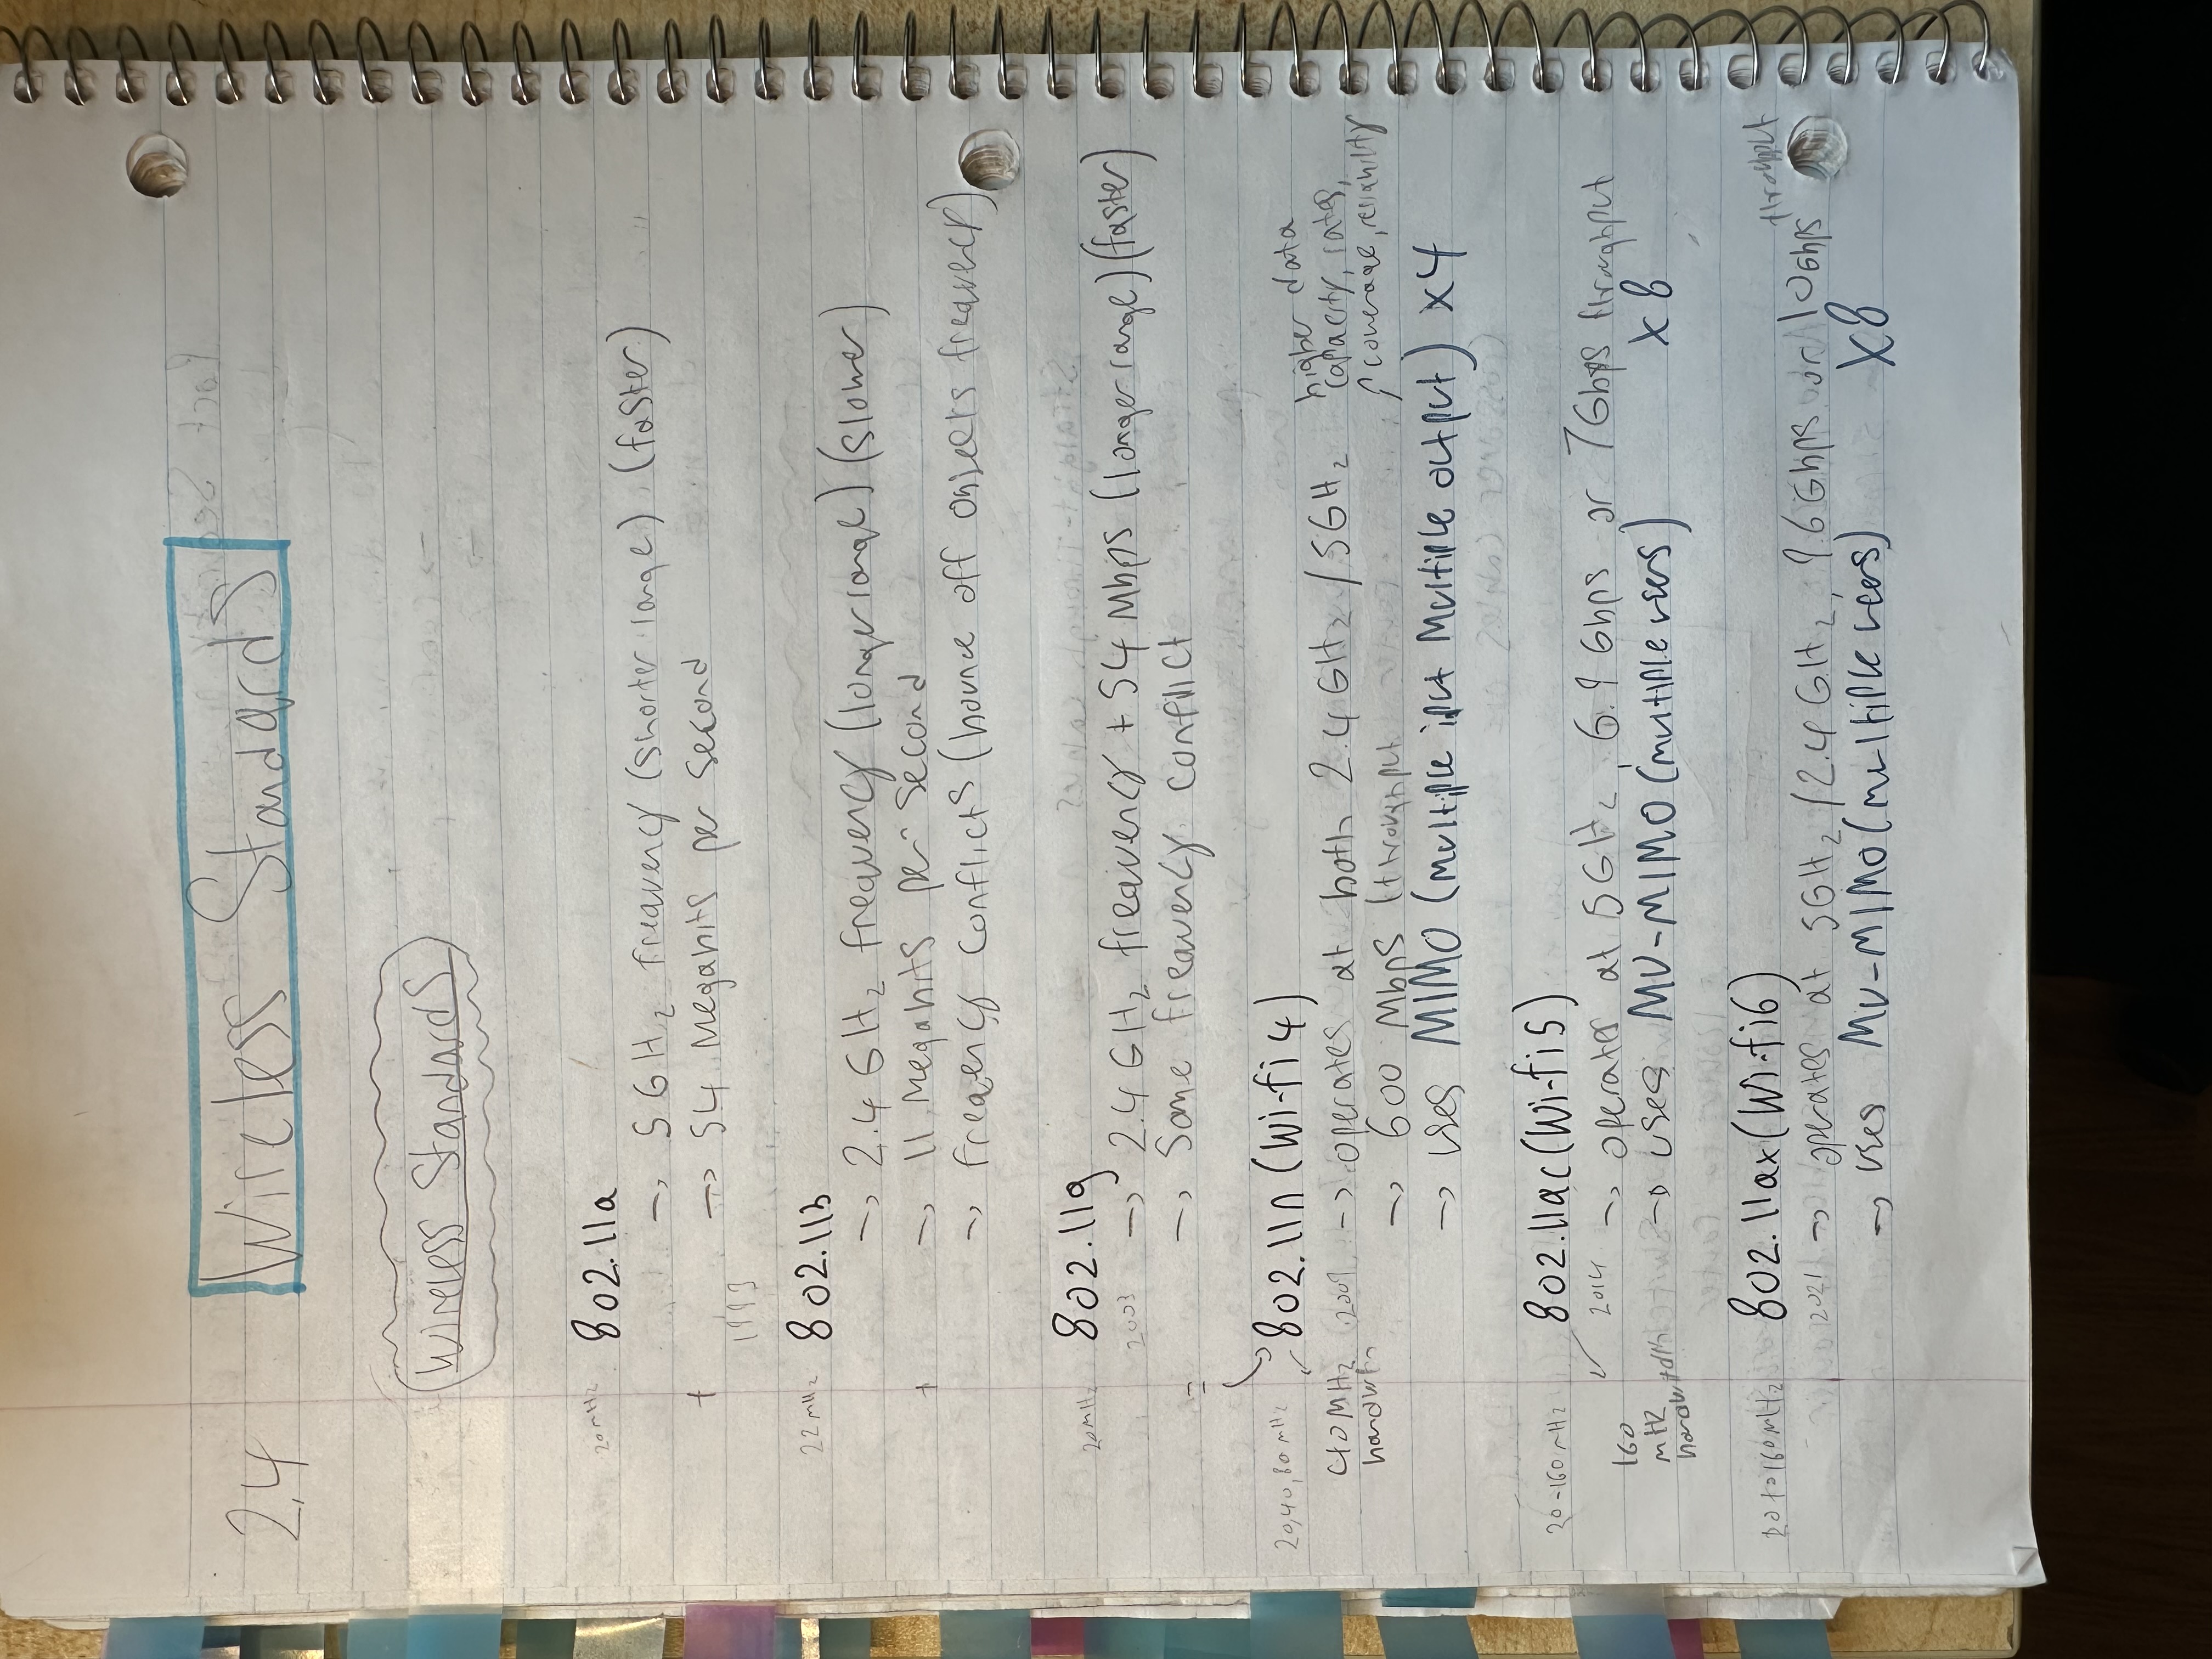 2.4 Wireless Standards
Wireless Standards
20MHz 802.11a
→ 5GHz frequency (shorter range) (faster)
+ → 54 Megabits per second
1999
22MHz 802.11b
→ 2.4GHz frequency (longer range) (slower)
+ → 11 Megabits per second
→ Freqency conflicts (bounce off objects frequency)
20MHz 802.11g
2003 → 2.4GHz frequency + 54 Mbps (longer range) (faster)
= → Same frequency conflict
20,40,80MHz 802.11n (Wi-fi 4)
higher data
capacity, rates,
↑ coverage, reliability
40MHz 2009 → operates at both 2.4GHz / 5GHz
→ 600 Mbps (throughput
→ uses MIMO (Multiple iput Multiple output) x4
20-160MHz 802.11ac (Wi-fi 5)
2014 → operates at 5GHz, 6.9 Gbps or 7Gbps throughput
160
MHz
bandwidth
→ uses MU-MIMO (multiple users) x8
20 to 160MHz 802.11ax (Wi-fi 6)
2021 → operates at 5GHz / 2.4GHz, 9.6Gbps or 10Gbps
→ uses MU-MIMO (multiple users) x8